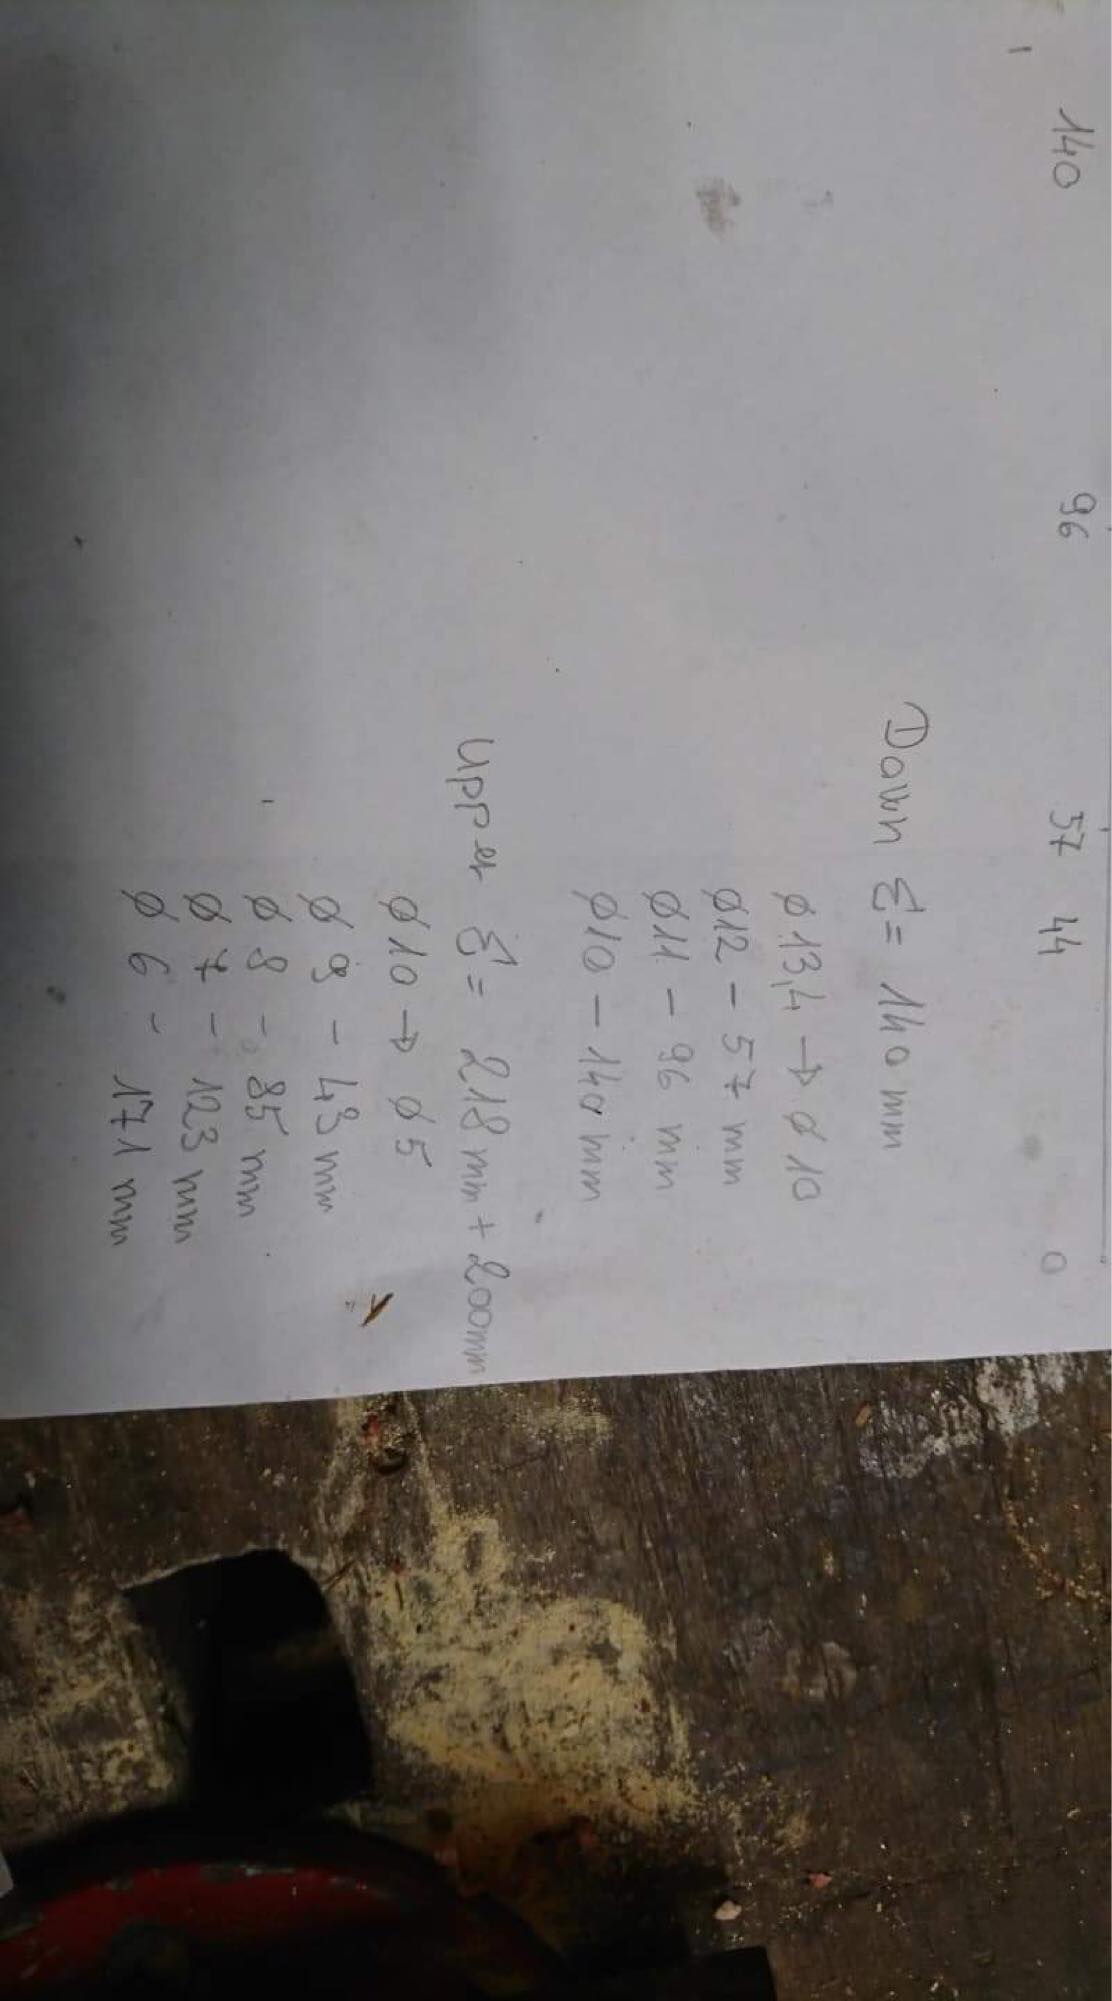 140 96 57 44 0
Down Σ = 140 mm
ø 13,4 → ø 10
ø12 - 57 mm
ø11 - 96 mm
ø10 - 140 mm
Upper Σ = 218 mm + 200mm
ø 10 → ø 5
ø 9 - 43 mm
ø 8 - 85 mm
ø 7 - 123 mm
ø 6 - 171 mm